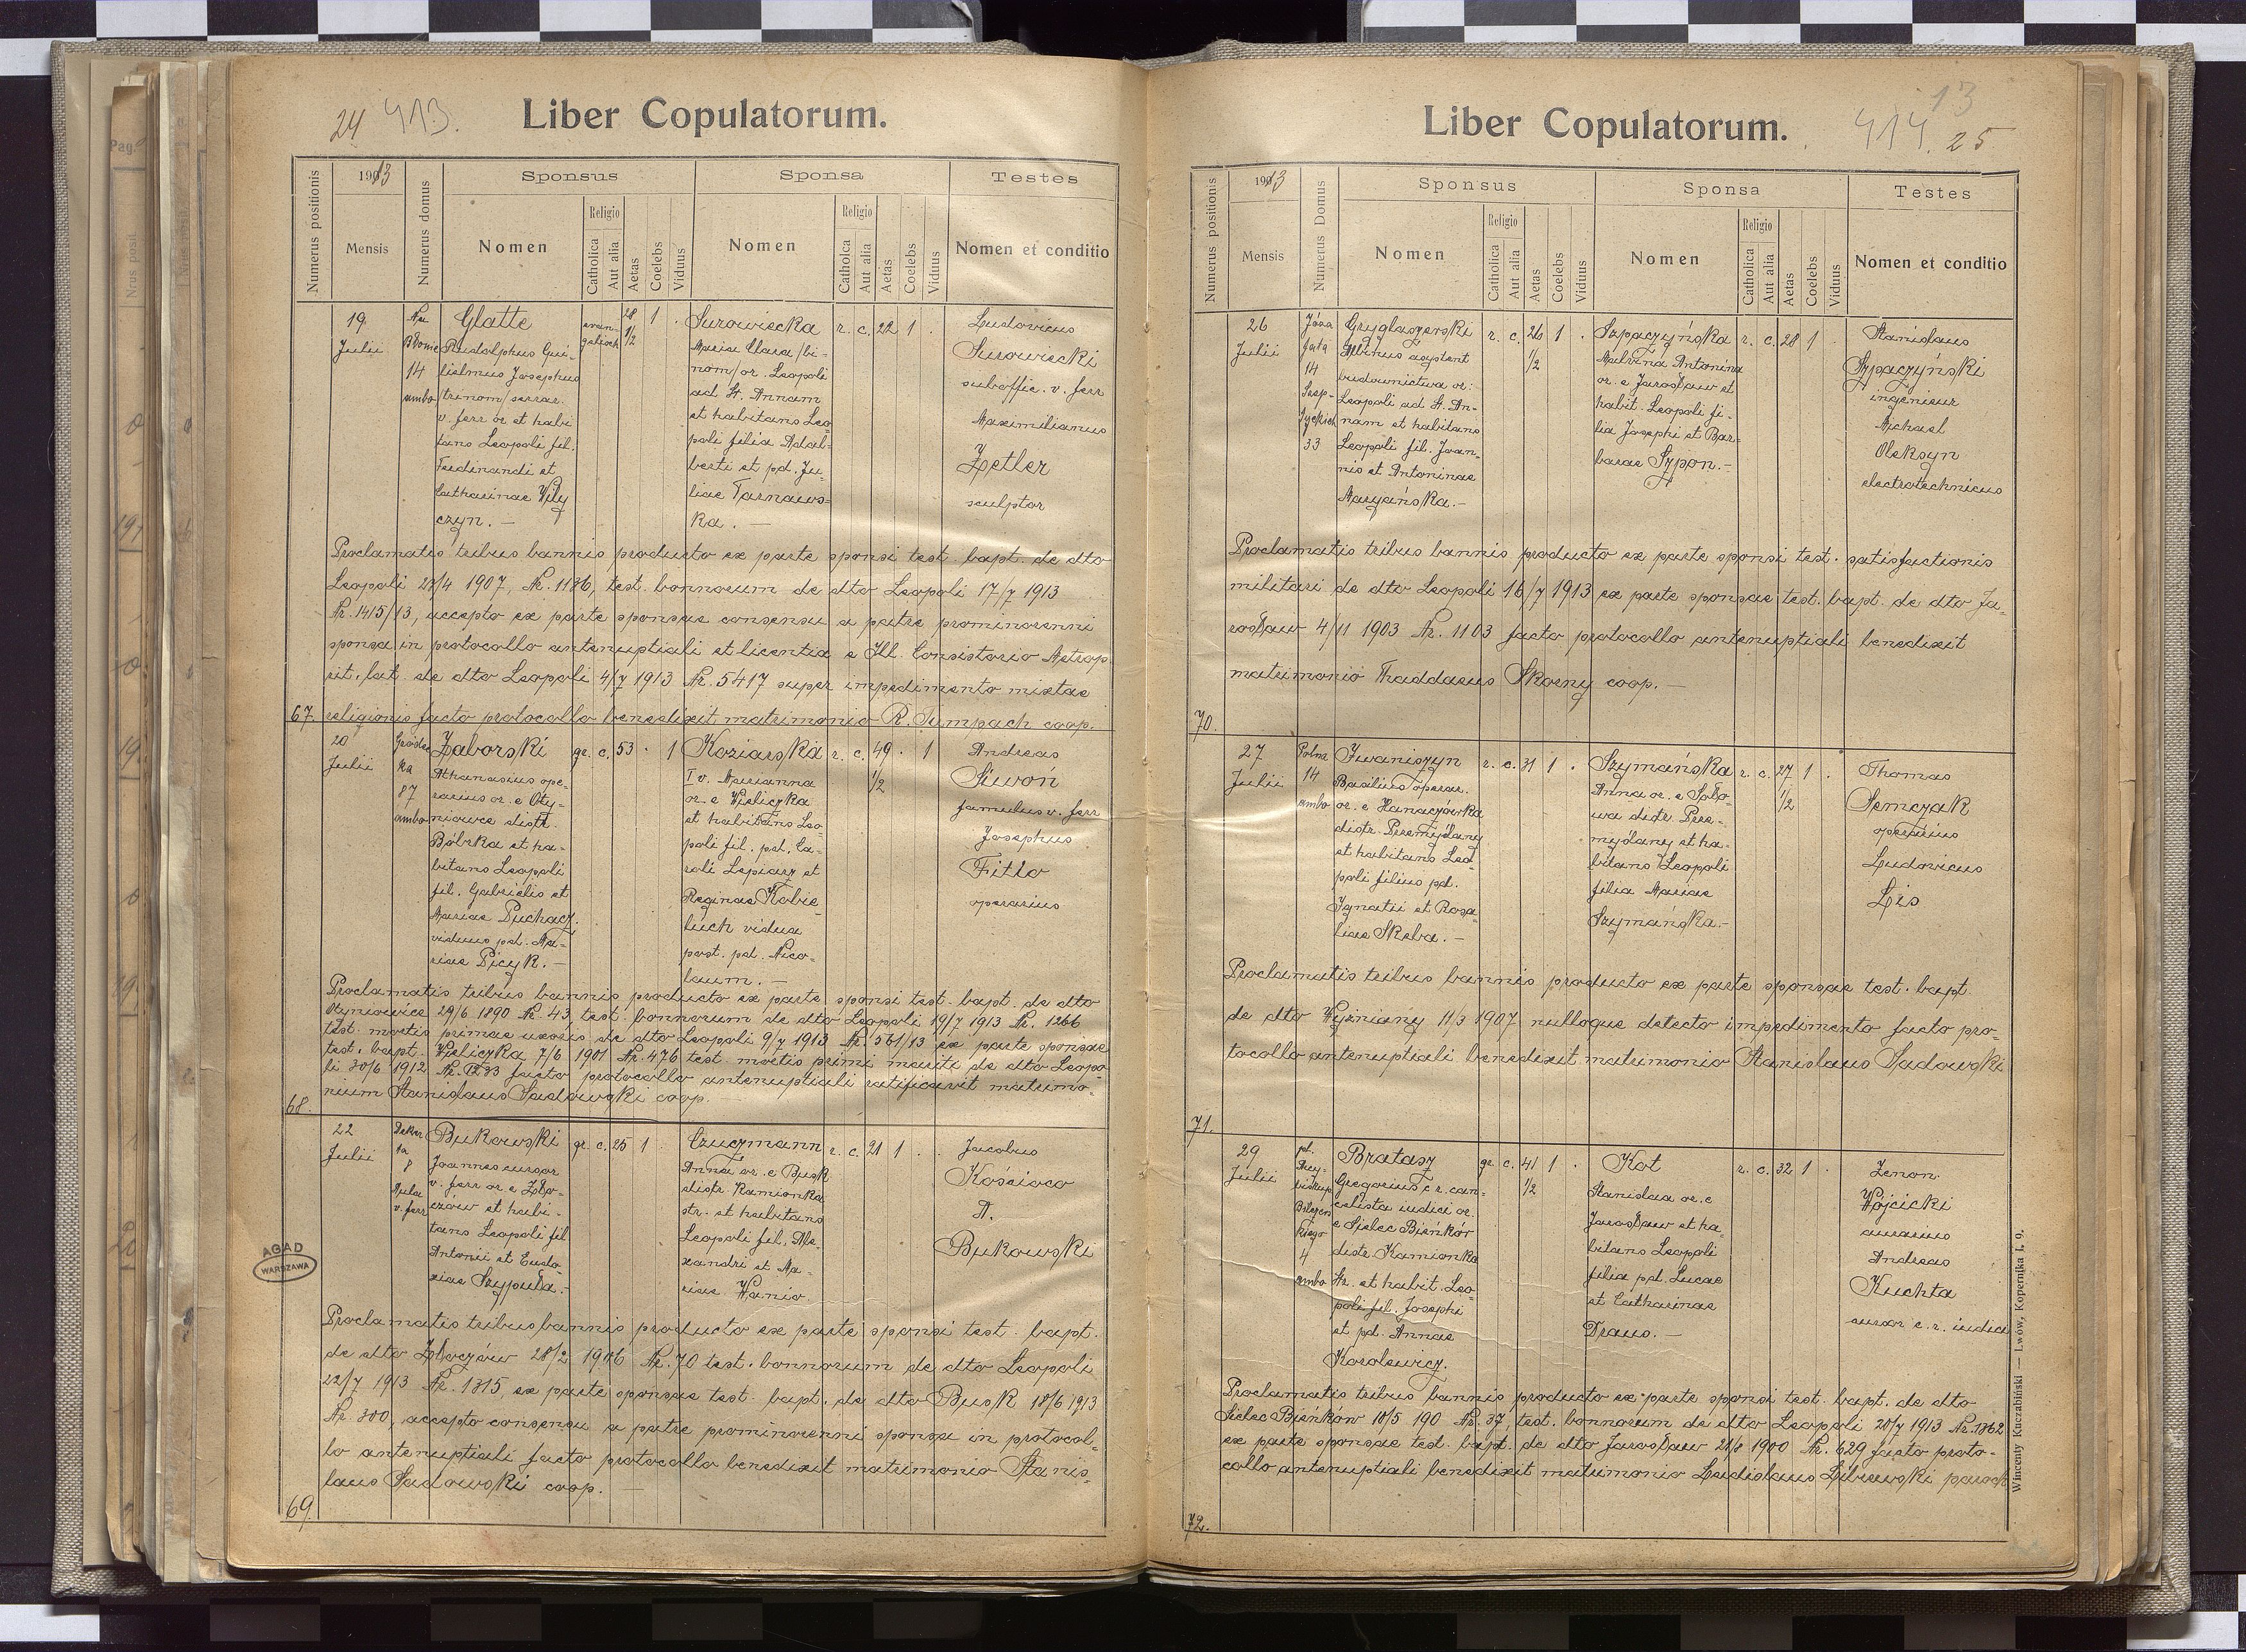 24 413.
Liber Copulatorum.
Numerus positionis
1913
Mensis
Numerus domus
Sponsus
Nomen
Religio
Catholica
Aut alia
Aetas
Coelebs
Viduus
Sponsa
Nomen
Religio
Catholica
Aut alia
Aetas
Coelebs
Viduus
Testes
Nomen et conditio
67.
19
Julii
Na
Błonie
14
ambo
Glatte
Rudolphus Gui-
lielmus Josephus
trinom/ serrar.
v. ferr or et habi
tans Leopoli fil.
Ferdinandi et
Catharinae Wily
czyn. –
28
1/2
1
.
Surowiecka
Maria Clara /bi-
nom/ or. Leopoli
ad St. Annam
et habitans Leo
poli filia Adal-
berti et pd. Ju
liae Tarnaws-
ka. –
r. c. 22 1 .
Ludovicus
Surowiecki
suboffic. v. ferr
Maximilianus
Zetler
sculptor
Proclamatis tribus bannis producto ex parte sponsi test. bapt. de dto
Leopoli 28/4 1907, Nr. 1136, test. bannorum de dto Leopoli 17/7 1913
Nr. 1415/13, accepto ex parte sponsae consensu a patre prominorenni
sponsa in protocollo antenuptiali et licentia e Ill. Consistorio Metrop.
rit. lat. de dto Leopoli 4/7 1913 Nr. 5417 super impedimento mixtae
religionis facto protocollo benedixit matrimonio R. Sumpach coop.
68.
20
Julii
Gródec
ka
87
ambo
Zaborski
Athanasius ope-
rarius or. e Oty-
niowce distr.
Bóbrka et ha-
bitans Leopoli
fil. Gabrielis et
Mariae Puchacz
viduus pd. Ma-
riae Picyk. –
gr. c. 53 . 1
Koziarska
I v. Marianna
or. e Wieliczka
et habitans Leo
poli fil. pd. Ca-
roli Lepiarz et
Reginae Kobie-
luch vidua
post. pd. Nico-
laum. –
r. c. 49 . 1
1/2
Andreas
Siwoń
famulus v. ferr
Josephus
Fitto
operarius
Proclamatis tribus bannis producto ex parte sponsi test. bapt. de dto
Otyniowice 29/6 1890 Nr. 43, test. bannorum de dto Leopoli 19/7 1913 Nr. 1266
test. mortis primae uxoris de dto Leopoli 9/7 1913 Nr. 561/13 ex parte sponsae
test. bapt. Wieliczka 7/6 1901 Nr. 476 test. mortis primi mariti de dto Leopo-
li 30/6 1912 Nr. facto protocollo antenuptiali ratificavit matrimo-
nium Stanislaus Sadowski coop. –
69.
22
Julii
Deker
ta
8
v. ferr
Bukowski
Joannes cursor
v. ferr or. e Zło-
czów et habi-
tans Leopoli fil
Antonii et Eudo
xiae Szypuła. –
gr. c. 25 1 .
Czuczmann
Anna or. e Busk
distr. Kamionka
str. et habitans
Leopoli fil. Ale-
xandri et Ma-
riae Wanio.
r. c. 21 1 .
Jacobus
Kościoco
A.
Bukowski
Proclamatis tribus bannis producto ex parte sponsi test. bapt.
de dto Złoczów 28/2 1906 Nr. 70 test. bannorum de dto Leopoli
22/7 1913 Nr. 1315, ex parte sponsae test. bapt. de dto Busk 18/6 1913
Nr. 300, accepto consensu a patre prominorenni sponsa in protocol-
lo antenuptiali facto protocollo benedixit matrimonio Stanis-
laus Sadowski coop. –
AGAD
WARSZAWA
13
414. 25
Liber Copulatorum.
Numerus positionis
1913
Mensis
Numerus Domus
Sponsus
Nomen
Religio
Catholica
Aut alia
Aetas
Coelebs
Viduus
Sponsa
Nomen
Religio
Catholica
Aut alia
Aetas
Coelebs
Viduus
Testes
Nomen et conditio
70.
26
Julii
Józa
fata
14
Szep-
tyckich
33
Gryglaszewski
Albinus asystent
budownictwa or.
Leopoli ad St. An-
nam et habitans
Leopoli fil. Joan-
nis et Antoninae
Maryańska. –
r. c. 26 1 .
1/2
Szpaczyńska
Malvina Antonina
or. e Jarosław et
habit. Leopoli fi-
lia Josephi et Bar-
barae Szpon. –
r. c. 28 1 .
Stanislaus
Szpaczyński
ingenieur
Michael
Oleksyn
electrotechnicus
Proclamatis tribus bannis producto ex parte sponsi test. satisfactionis
militari de dto Leopoli 16/7 1913 ex parte sponsae test. bapt. de dto Ja-
rosław 4/11 1903 Nr. 1103 facto protocollo antenuptiali benedixit
matrimonio Thaddaeus Skorny coop. –
71.
27
Julii
Polna
14
ambo
Iwaniszyn
Basilius operar.
or. e Hanaczówka
distr. Przemyślany
et habitans Leo
poli filius pd.
Ignatii et Rosa-
liae Skaba. –
r. c. 31 1 .
Szymańska
Anna or. e Soło-
wa distr. Prze-
myślany et ha-
bitans Leopoli
filia Mariae
Szymańska. –
r. c. 27 1 .
1/2
Thomas
Semczak
operarius
Ludovicus
Lis
Proclamatis tribus bannis producto ex parte sponsae test. bapt.
de dto Wyżniany 11/3 1907 nulloque detecto impedimento facto pro-
tocollo antenuptiali benedixit matrimonio Stanislaus Sadowski
72.
29
Julii
pl.
4
ambo
Bratasz
Gregorius c. r. can-
celista iudici or.
e Sielec Bieńków
distr. Kamionka
Str. et habit. Leo-
poli fil. Josephi
et pd. Annae
Korolewicz.
gr. c. 41 1 .
1/2
Kot
Stanislaa or. e
Jarosław et ha
bitans Leopoli
filia pd. Lucae
et Catharinae
Draus. –
r. c. 32 1 .
Zenon
Wójcicki
aurarius
Andreas
Kuchta
cursor c. r. iudici
Proclamatis tribus bannis producto ex parte sponsi test. bapt. de dto
Sielec Bieńków 10/5 190 Nr. 37, test. bannorum de dto Leopoli 20/7 1913 Nr. 1362
ex parte sponsae test. bapt. de dto Jarosław 28/8 1900 Nr. 629 facto proto-
collo antenuptiali benedixit matrimonio Ladislaus Librewski paroch.
Wincenty Kuczabiński — Lwów, Kopernika l. 9.